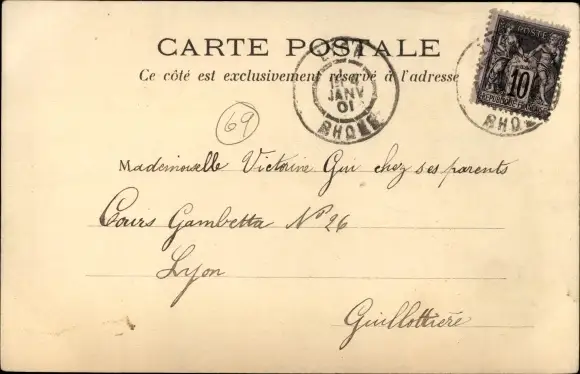 CARTE POSTALE
Ce côté est exclusivement réservé à l'adresse
JANV
01
RHONE
POSTE
10
RHONE
69
Mademoiselle Victorine Gui chez ses parents
Cours Gambetta Nº 26
Lyon
Guillottière